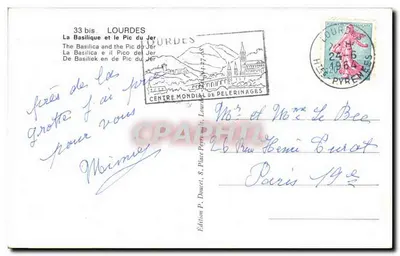 33 bis LOURDES
La Basilique et le Pic du Jer
The Basilica and the Pic du Jer
La Basilica e il Pico del Jer
De Basiliek en de Pic du Jer
LOURDES
CENTRE MONDIAL DE PELERINAGES
LOURDES
24-6
Htes PYRENEES
près de la
Grotte j'ai prié
pour vous
Mimie
Edition P. Doucet, 8, Place
Mr et Mme Le Bec
26 Rue Henri Turot
Paris 19e
CPARAMA.COM